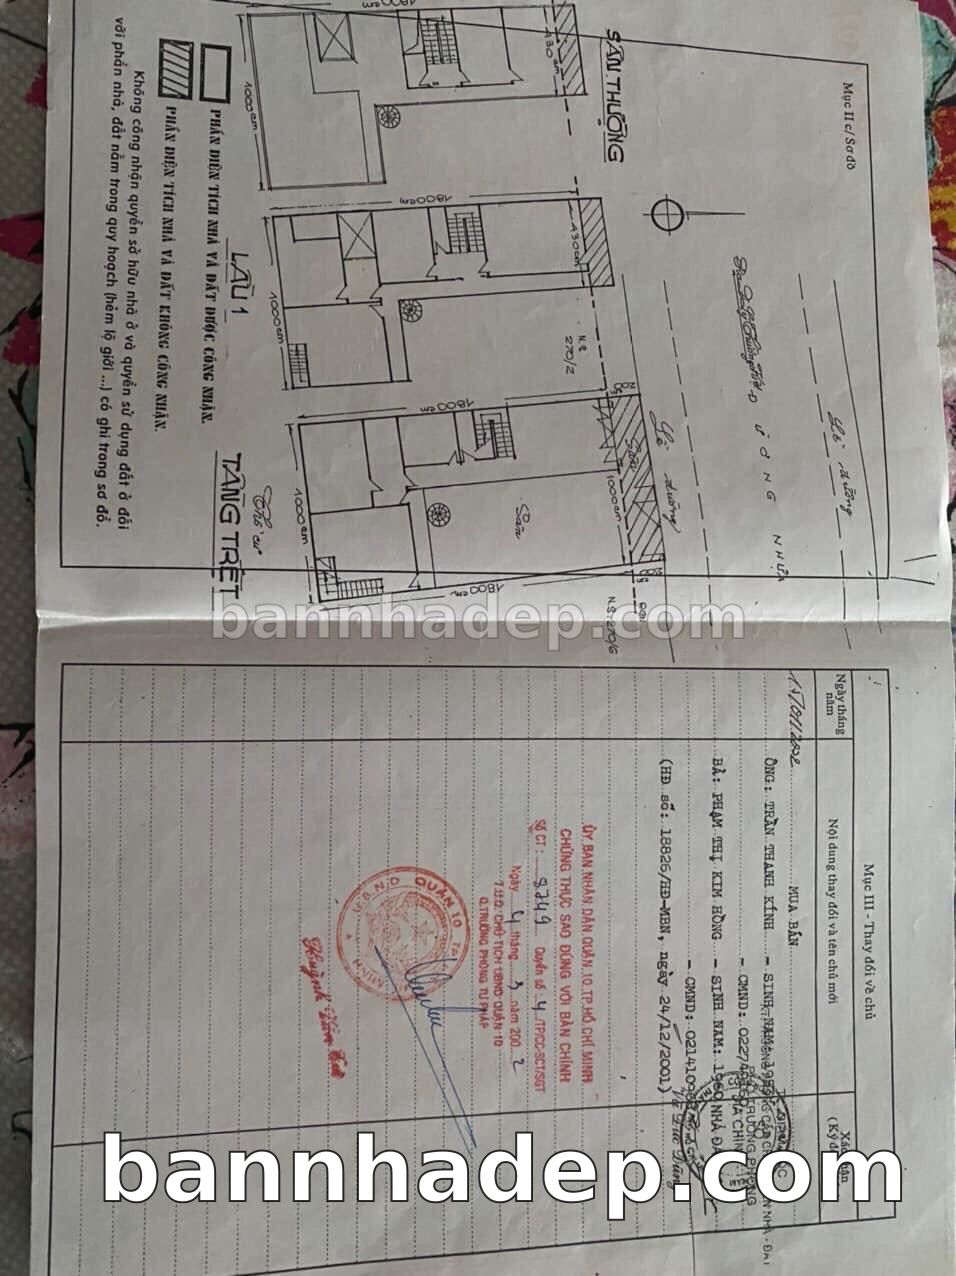 Mục II c/ Sơ đồ
SÂN THƯỢNG
430 cm
1800 cm
1000 cm
LẦU 1
430 cm
1800 cm
1000 cm
N.S
270/2
TẦNG TRỆT
Thổ cư
1800 cm
1000 cm
1000 cm
1800 cm
Sân
Sân
N.S 270/6
Lề đường
ƯỜNG NHỰA
Lề đường
PHẦN DIỆN TÍCH NHÀ VÀ ĐẤT ĐƯỢC CÔNG NHẬN.
PHẦN DIỆN TÍCH NHÀ VÀ ĐẤT KHÔNG CÔNG NHẬN.
Không công nhận quyền sở hữu nhà ở và quyền sử dụng đất ở đối
với phần nhà, đất nằm trong quy hoạch (hẻm lộ giới ...) có ghi trong sơ đồ.
bannhadep.com
Mục III - Thay đổi về chủ
Ngày tháng
năm
Nội dung thay đổi và tên chủ mới
MUA BÁN
ÔNG: TRẦN THANH KÍNH - SINH NAM:
- CMND:
BÀ: PHẠM THỊ KIM HỒNG - SINH NAM: 1960
- CMND:
(HĐ số: 18826/HĐ-MBN, ngày 24/12/2001)
ỦY BAN NHÂN DÂN QUẬN 10 TP.HỒ CHÍ MINH
CHỨNG THỰC SAO ĐÚNG VỚI BẢN CHÍNH
Số CT: 8749 Quyển số 4 /TP/CC-SCT/SGT
Ngày 4 tháng năm 2002
T.U.Q. CHỦ TỊCH UBND QUẬN 10
Q.TRƯỞNG PHÒNG TƯ PHÁP
U.B.N.D QUẬN 10
bannhadep.com